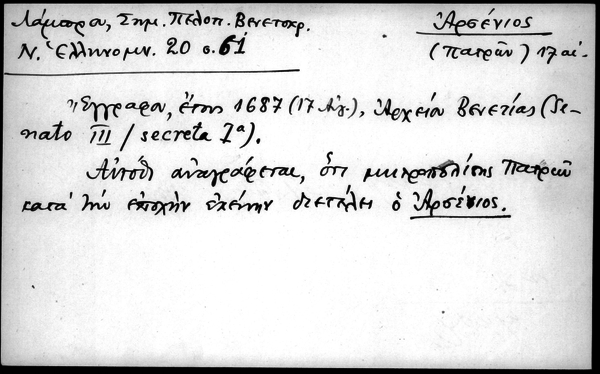 Λάμπρου, Σημ. Πελοπ. Βενετοκρ.
Ν. Ἑλληνομν. 20 σ. 61
Ἀρσένιος
(Πατρῶν) 17 αἰ.
Ἔγγραφον, ἔτους 1687 (17 Αὐγ.), Ἀρχείου Βενετίας (Se-
nato III / secreta 1ª).
Αὐτόθι ἀναγράφεται, ὅτι μητροπολίτης Πατρῶν
κατὰ τὴν ἐποχὴν ἐκείνην διετέλει ὁ Ἀρσένιος.